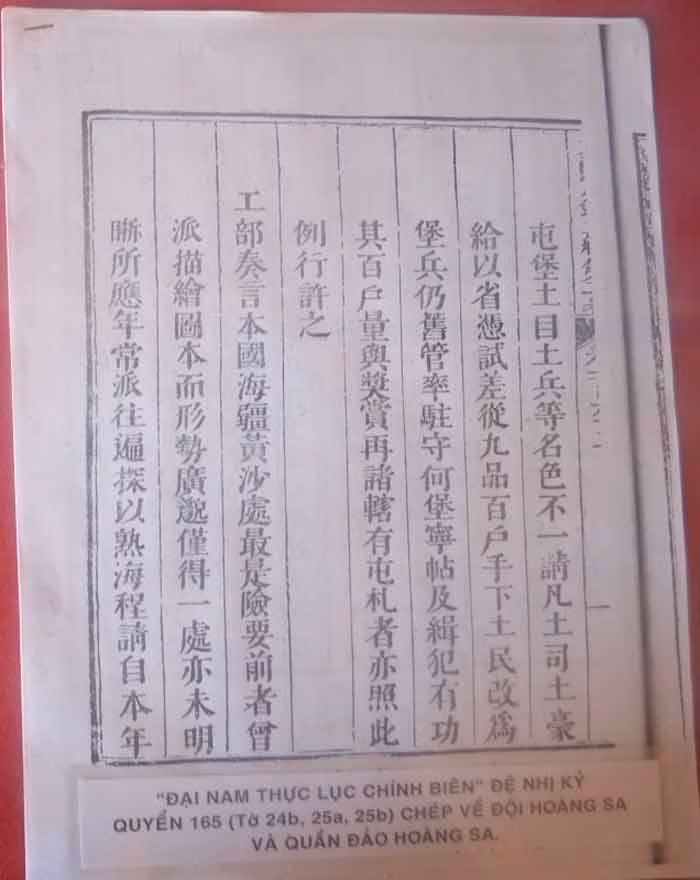 屯堡土目土兵等名色不一請凡土司土豪
給以省憑試差從九品百戶手下土民改爲
堡兵仍舊管率駐守何堡寧帖及緝犯有功
其百戶量與奬賞再諸轄有屯札者亦照此
例行許之
工部奏言本國海疆黃沙處最是險要前者曾
派描繪圖本而形勢廣邈僅得一處亦未明
晣所應年常派往遍探以熟海程請自本年
"ĐẠI NAM THỰC LỤC CHÍNH BIÊN" ĐỆ NHỊ KỶ
QUYỂN 165 (Tờ 24b, 25a, 25b) CHÉP VỀ ĐỘI HOÀNG SA
VÀ QUẦN ĐẢO HOÀNG SA.